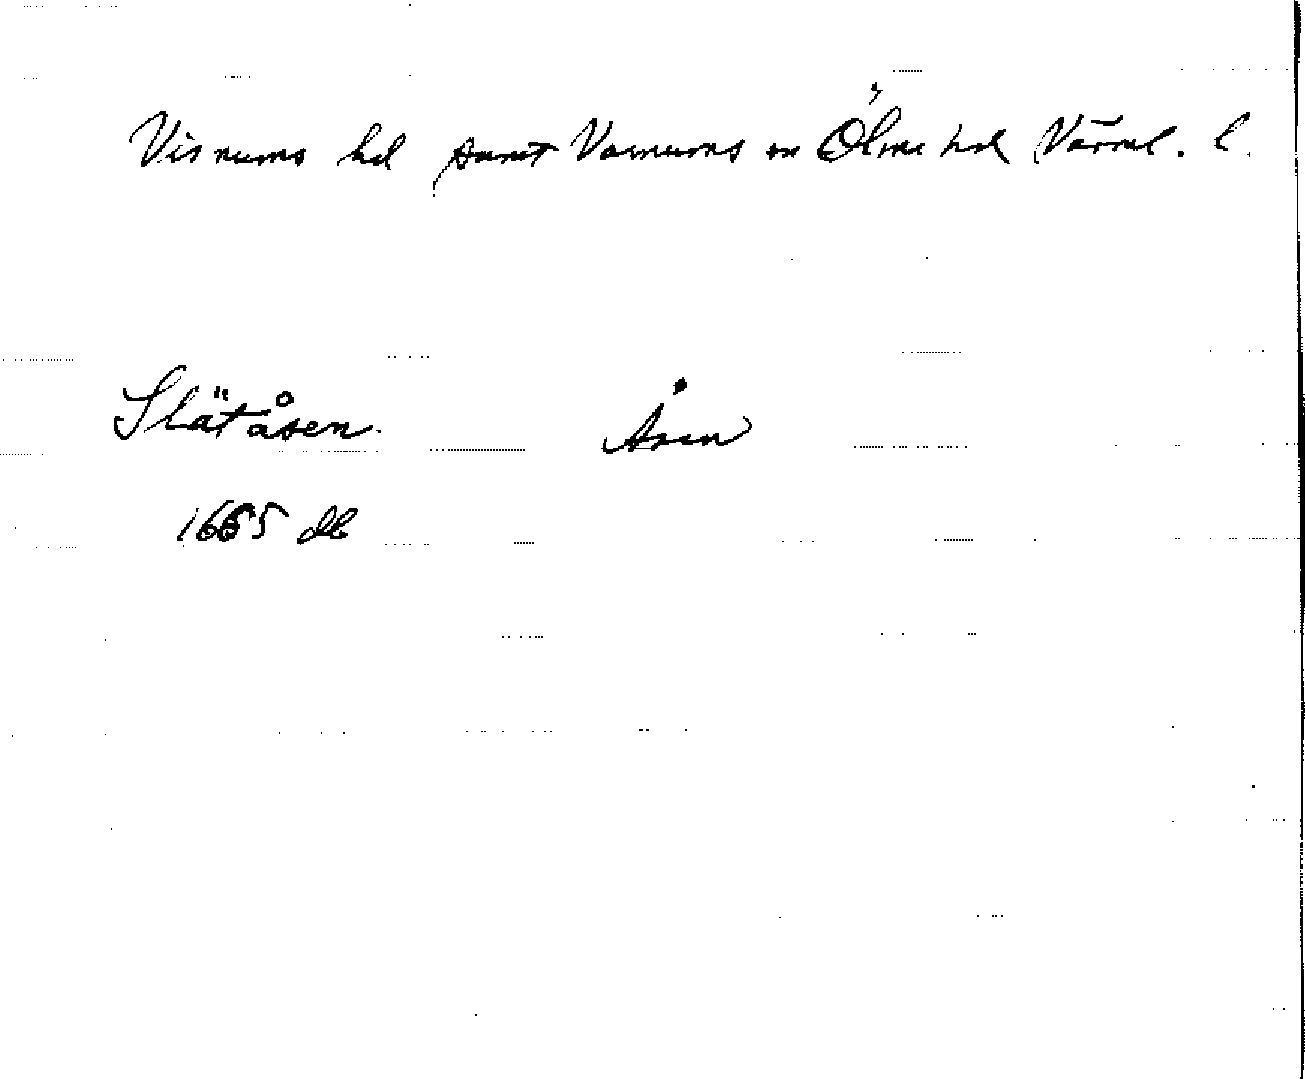 Visnums hd samt Varnums sn Ölme hd Värml. l.
Slätåsen. Åsen
1665 db